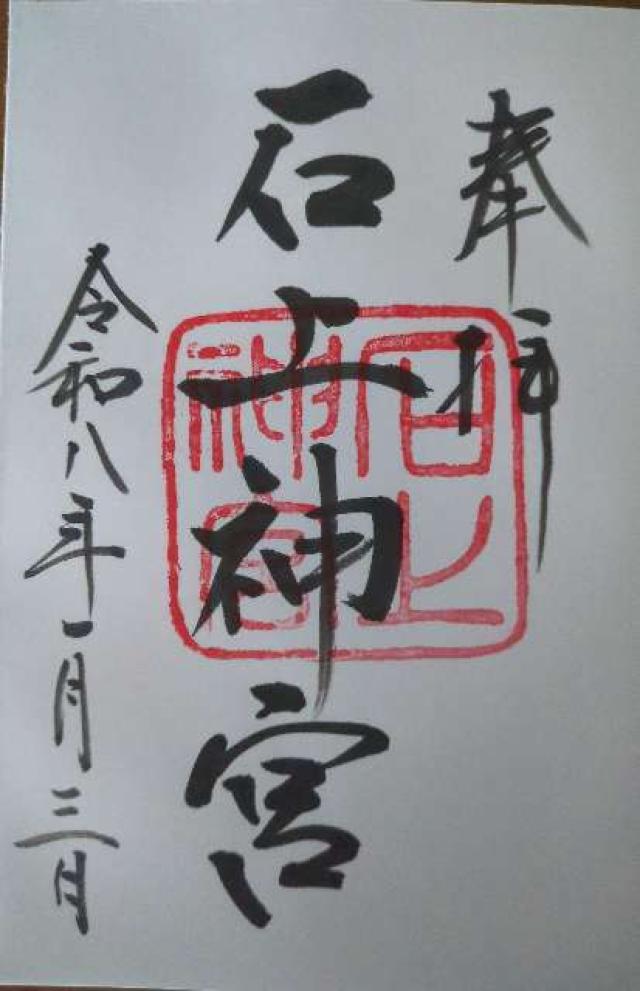 奉拝
石上神宮
石上神宮
令和八年一月三日